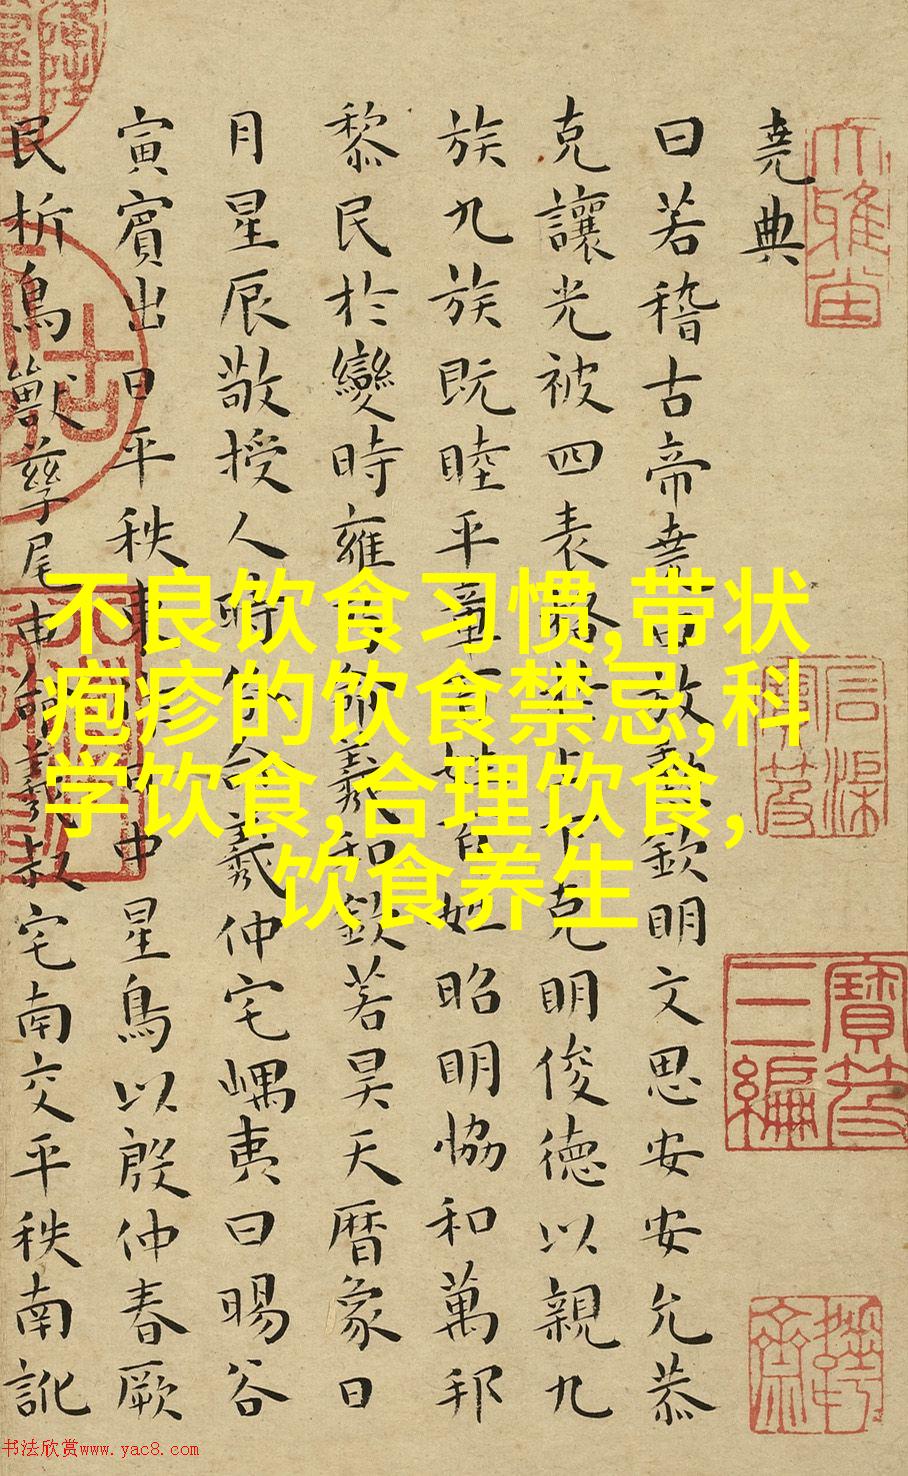 堯典
曰若稽古帝堯曰放勳欽明文思安安允恭
克讓光被四表格于上下克明俊德以親九
族九族既睦平章百姓百姓昭明恊和萬邦
黎民於變時雍乃命羲和欽若昊天曆象日
月星辰敬授人時分命羲仲宅嵎夷曰暘谷
寅賓出日平秩東作日中星鳥以殷仲春厥
民析鳥獸孳尾申命羲叔宅南交平秩南訛
寶笈
三編
不良饮食习惯,带状
疱疹的饮食禁忌,科
学饮食,合理饮食,
饮食养生
书法欣赏www.yac8.com